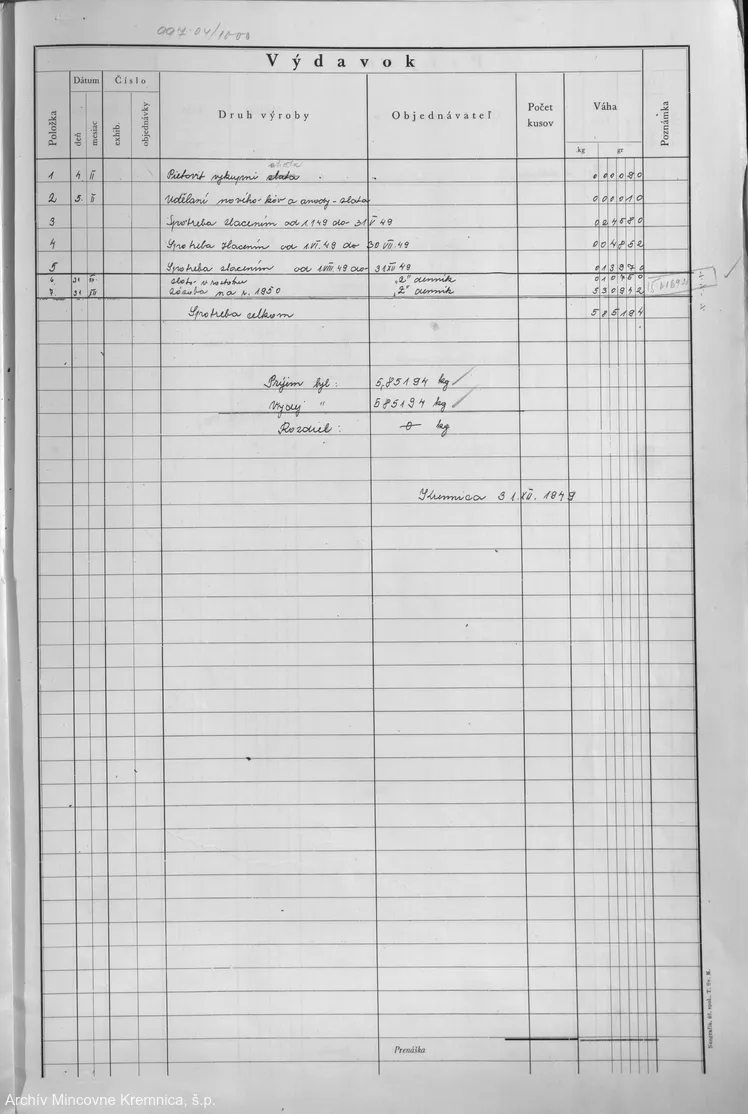 997-04/10-00
Výdavok
Položka
Dátum
deň
mesiac
Číslo
exhib.
objednávky
Druh výroby
Objednávateľ
Počet kusov
Váha
kg gr
Poznámka
1 4. II výkupní zlata 0 0 0 0 2 0
2 5. II Udělaní nového kov a anody-zlata 0 0 0 0 1 0
3 Spotreba zlacením od 1 1 49 do 31 V 49 0 2 4 5 8 0
4 Spotreba zlacením od 1 VI. 49 do 30 VII. 49 0 0 4 8 5 2
5 Spotreba zlacením od 1 VIII. 49 do 31 XII 49 0 1 3 9 7 0
6 31 zlato v roztoku "2" denník
7 31 XII Zásoba na r. 1950 "2" denník 5 3 0 9 4 2
Spotreba celkom 5 8 5 1 9 4
Príjem byl: 5,85194 kg
Výdej " 585194 kg
Rozdiel: 0 kg
Kremnica 31. XII. 1949
Prenáška
Neografia, úč. spol., T. Sv. M.
Archív Mincovne Kremnica, š.p.